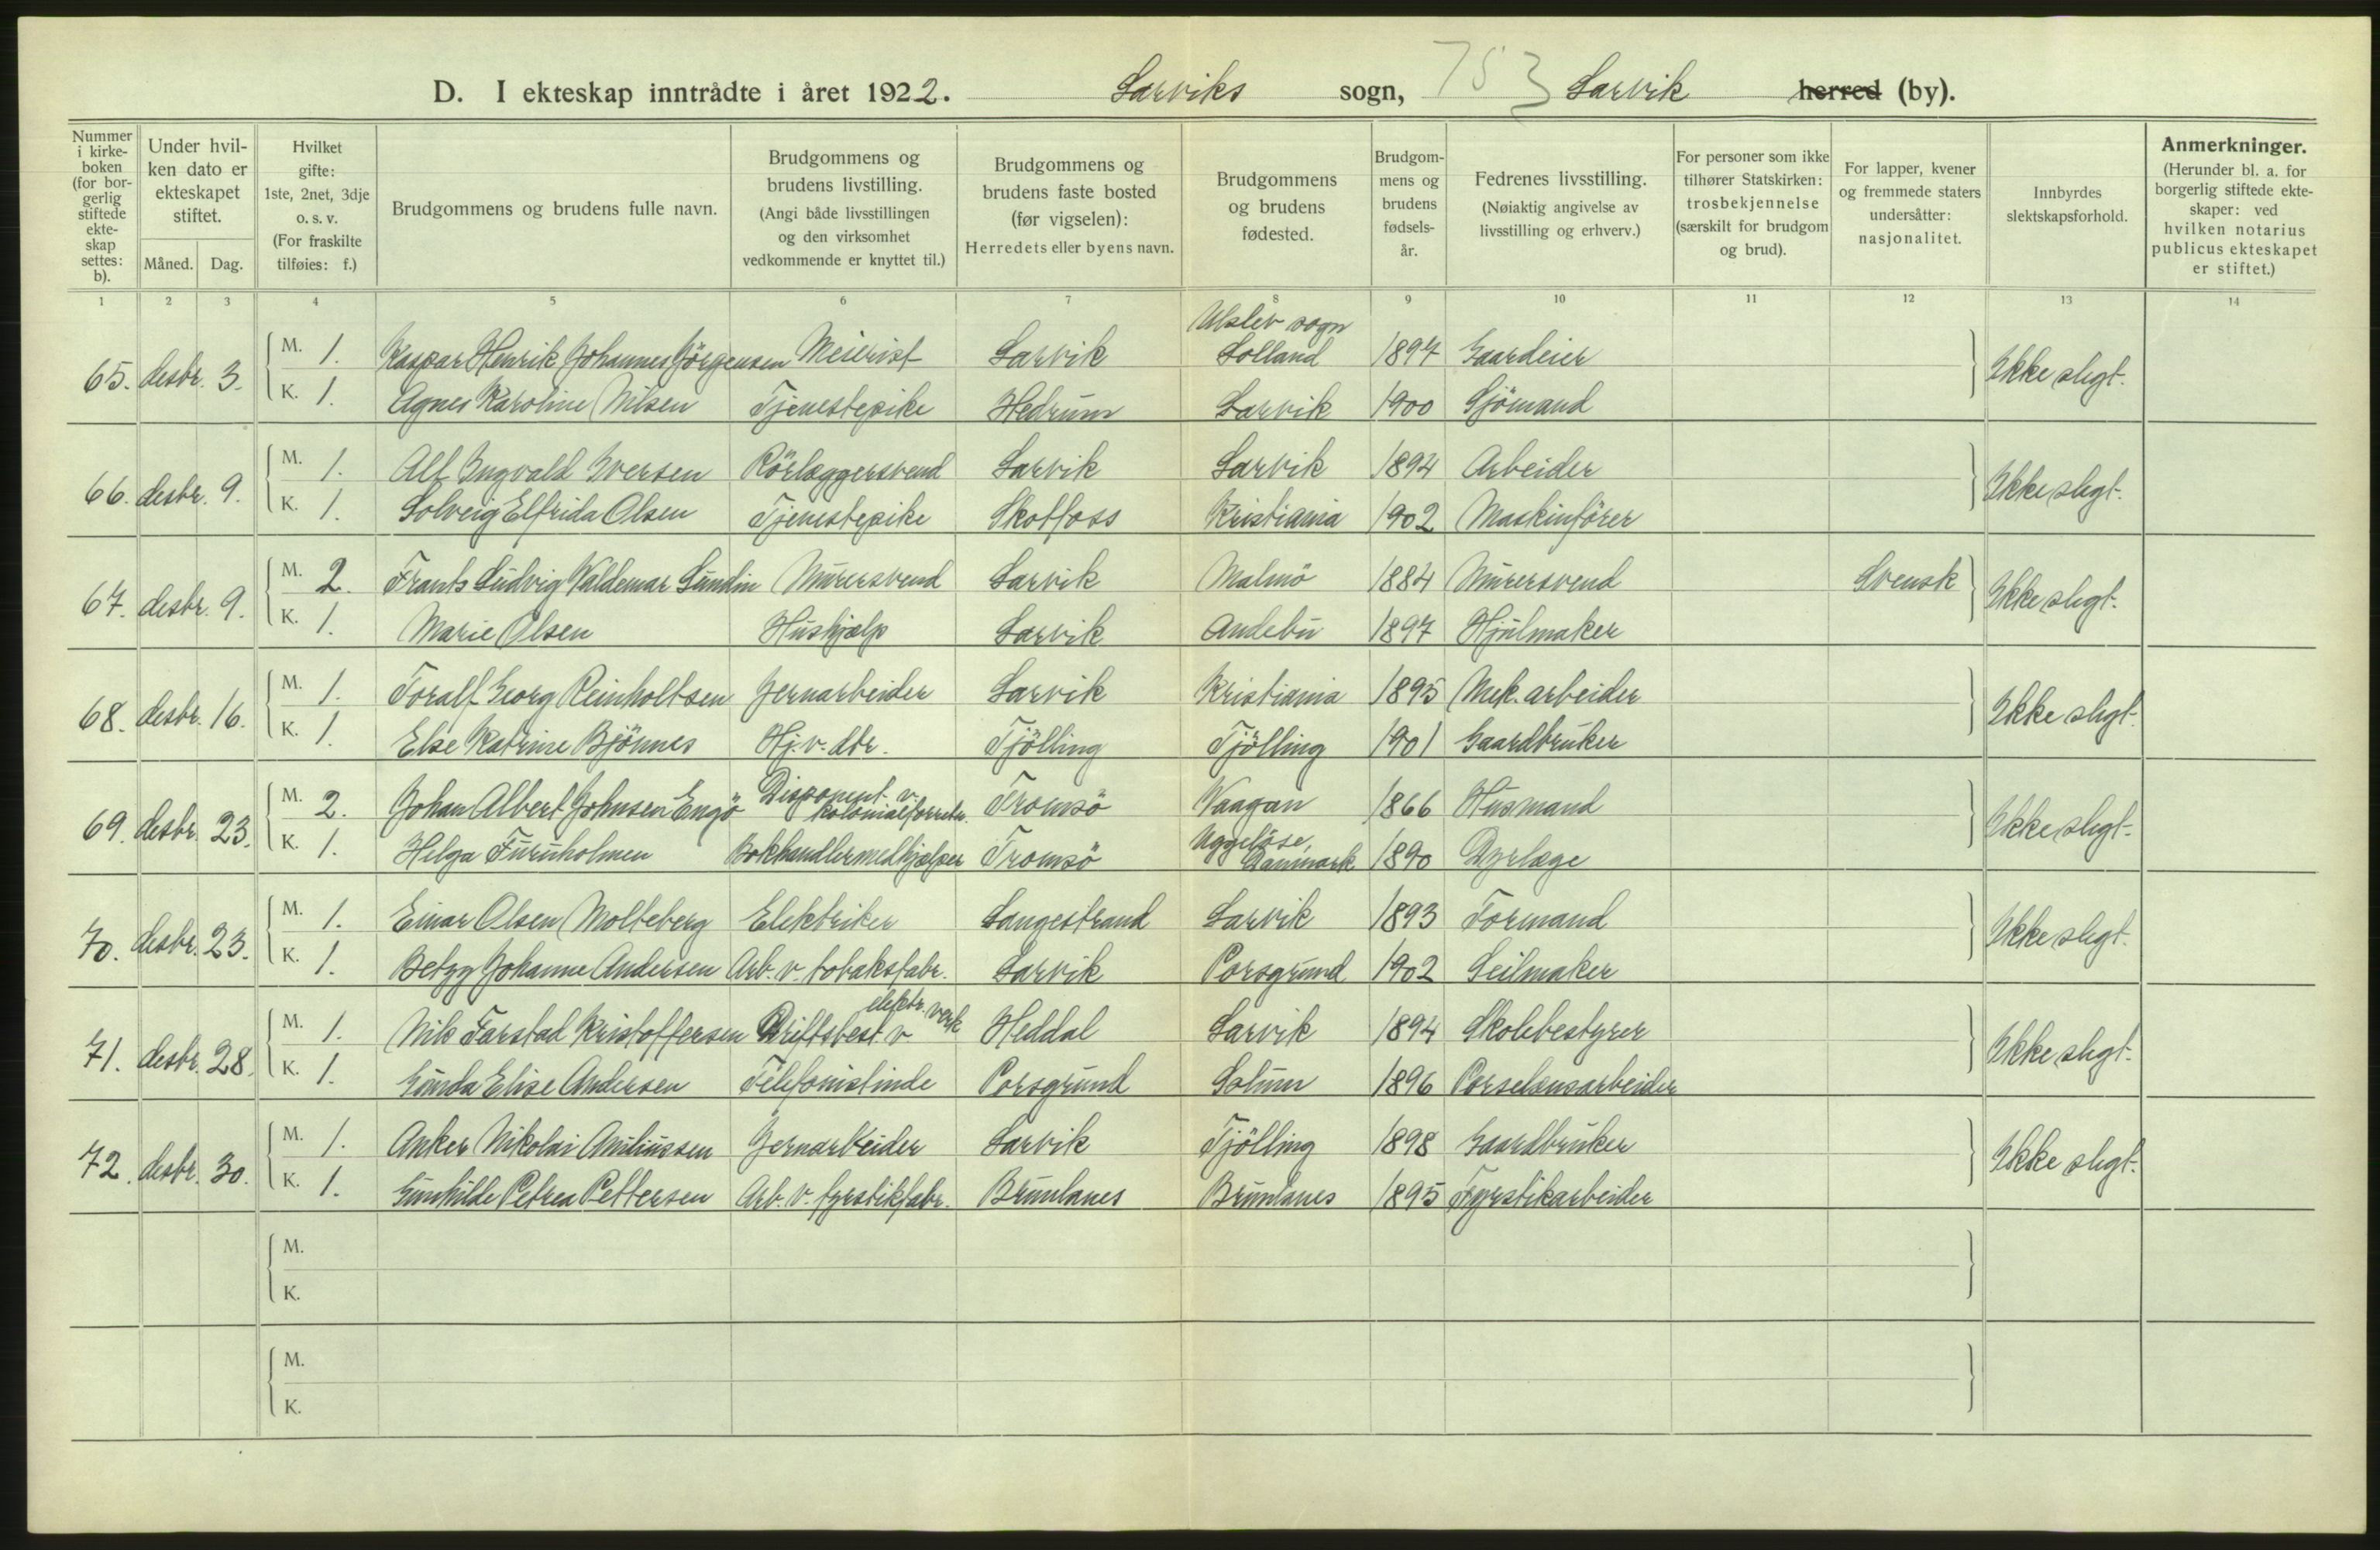 D. I ekteskap inntrådte i året 1922. Larviks sogn, 753 Larvik herred (by).
Nummer i kirke-boken (for bor-gerlig stiftede ekte-skap settes: b).
Under hvil-ken dato er ekteskapet stiftet.
Måned. Dag.
Hvilket gifte: 1ste, 2net, 3dje o. s. v. (For fraskilte tilføies: f.)
Brudgommens og brudens fulle navn.
Brudgommens og brudens livstilling. (Angi både livsstillingen og den virksomhet vedkommende er knyttet til.)
Brudgommens og brudens faste bosted (før vigselen): Herredets eller byens navn.
Brudgommens og brudens fødested.
Brudgom-mens og brudens fødsels-år.
Fedrenes livsstilling. (Nøiaktig angivelse av livsstilling og erhverv.)
For personer som ikke tilhører Statskirken: trosbekjennelse (særskilt for brudgom og brud).
For lapper, kvener og fremmede staters undersåtter: nasjonalitet.
Innbyrdes slektskapsforhold.
Anmerkninger. (Herunder bl. a. for borgerlig stiftede ekte-skaper: ved hvilken notarius publicus ekteskapet er stiftet.)
1 2 3 4 5 6 7 8 9 10 11 12 13 14
65. desbr. 3. M. 1. Kaspar Henrik Johannes Jörgensen Meierist Larvik Ulslev sogn Lolland 1897 Gaardeier Ikke slegt.
K. 1. Agnes Karoline Nilsen Tjenestepike Hedrum Larvik 1900 Sjömand
66. desbr. 9. M. 1. Alf Ingvald Iversen Rörlæggersvend Larvik Larvik 1894 Arbeider Ikke slegt.
K. 1. Solveig Elfrida Olsen Tjenestepike Skotfoss Kristiania 1902 Maskinfører
67. desbr. 9. M. 2. Frants Ludvig Valdemar Lundin Murersvend Larvik Malmö 1884 Murersvend Svensk Ikke slegt.
K. 1. Marie Olsen Hushjælp Larvik Andebu 1897 Hjulmaker
68. desbr. 16. M. 1. Toralf Georg Reinholtsen Jernarbeider Larvik Kristiania 1895 Mek. arbeider Ikke slegt.
K. 1. Else Katrine Bjönnes Hj. v. dtr. Tjölling Tjölling 1901 Gaardbruker
69. desbr. 23. M. 2. Johan Albert Johnsen Engö Disponent v. kolonialforretn. Tromsö Vaagan 1866 Husmand Ikke slegt.
K. 1. Helga Furuholmen Bokhandlermedhjælper Tromsö Uggelöse, Danmark 1890 Dyrlæge
70. desbr. 23. M. 1. Einar Olsen Molteberg Elektriker Langestrand Larvik 1893 Formand Ikke slegt.
K. 1. Betzy Johanne Andersen Arb. v. tobaksfabr. Larvik Porsgrund 1902 Seilmaker
71. desbr. 28. M. 1. Nils Farstad Kristoffersen Driftsbest. v elektr. verk Heddal Larvik 1894 Skolebestyrer Ikke slegt.
K. 1. Gunda Elise Andersen Telefonistinde Porsgrund Solum 1896 Porselænsarbeider
72. desbr. 30. M. 1. Anker Nikolai Amiliussen Jernarbeider Larvik Tjölling 1898 Gaardbruker Ikke slegt.
K. 1. Gunhilde Petrea Pettersen Arb. v. fyrstikfabr. Brunlanes Brunlanes 1895 Fyrstikarbeider
M.
K.
M.
K.